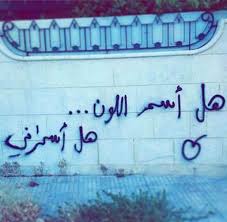 هل أسمر اللون...
هل أسمراني